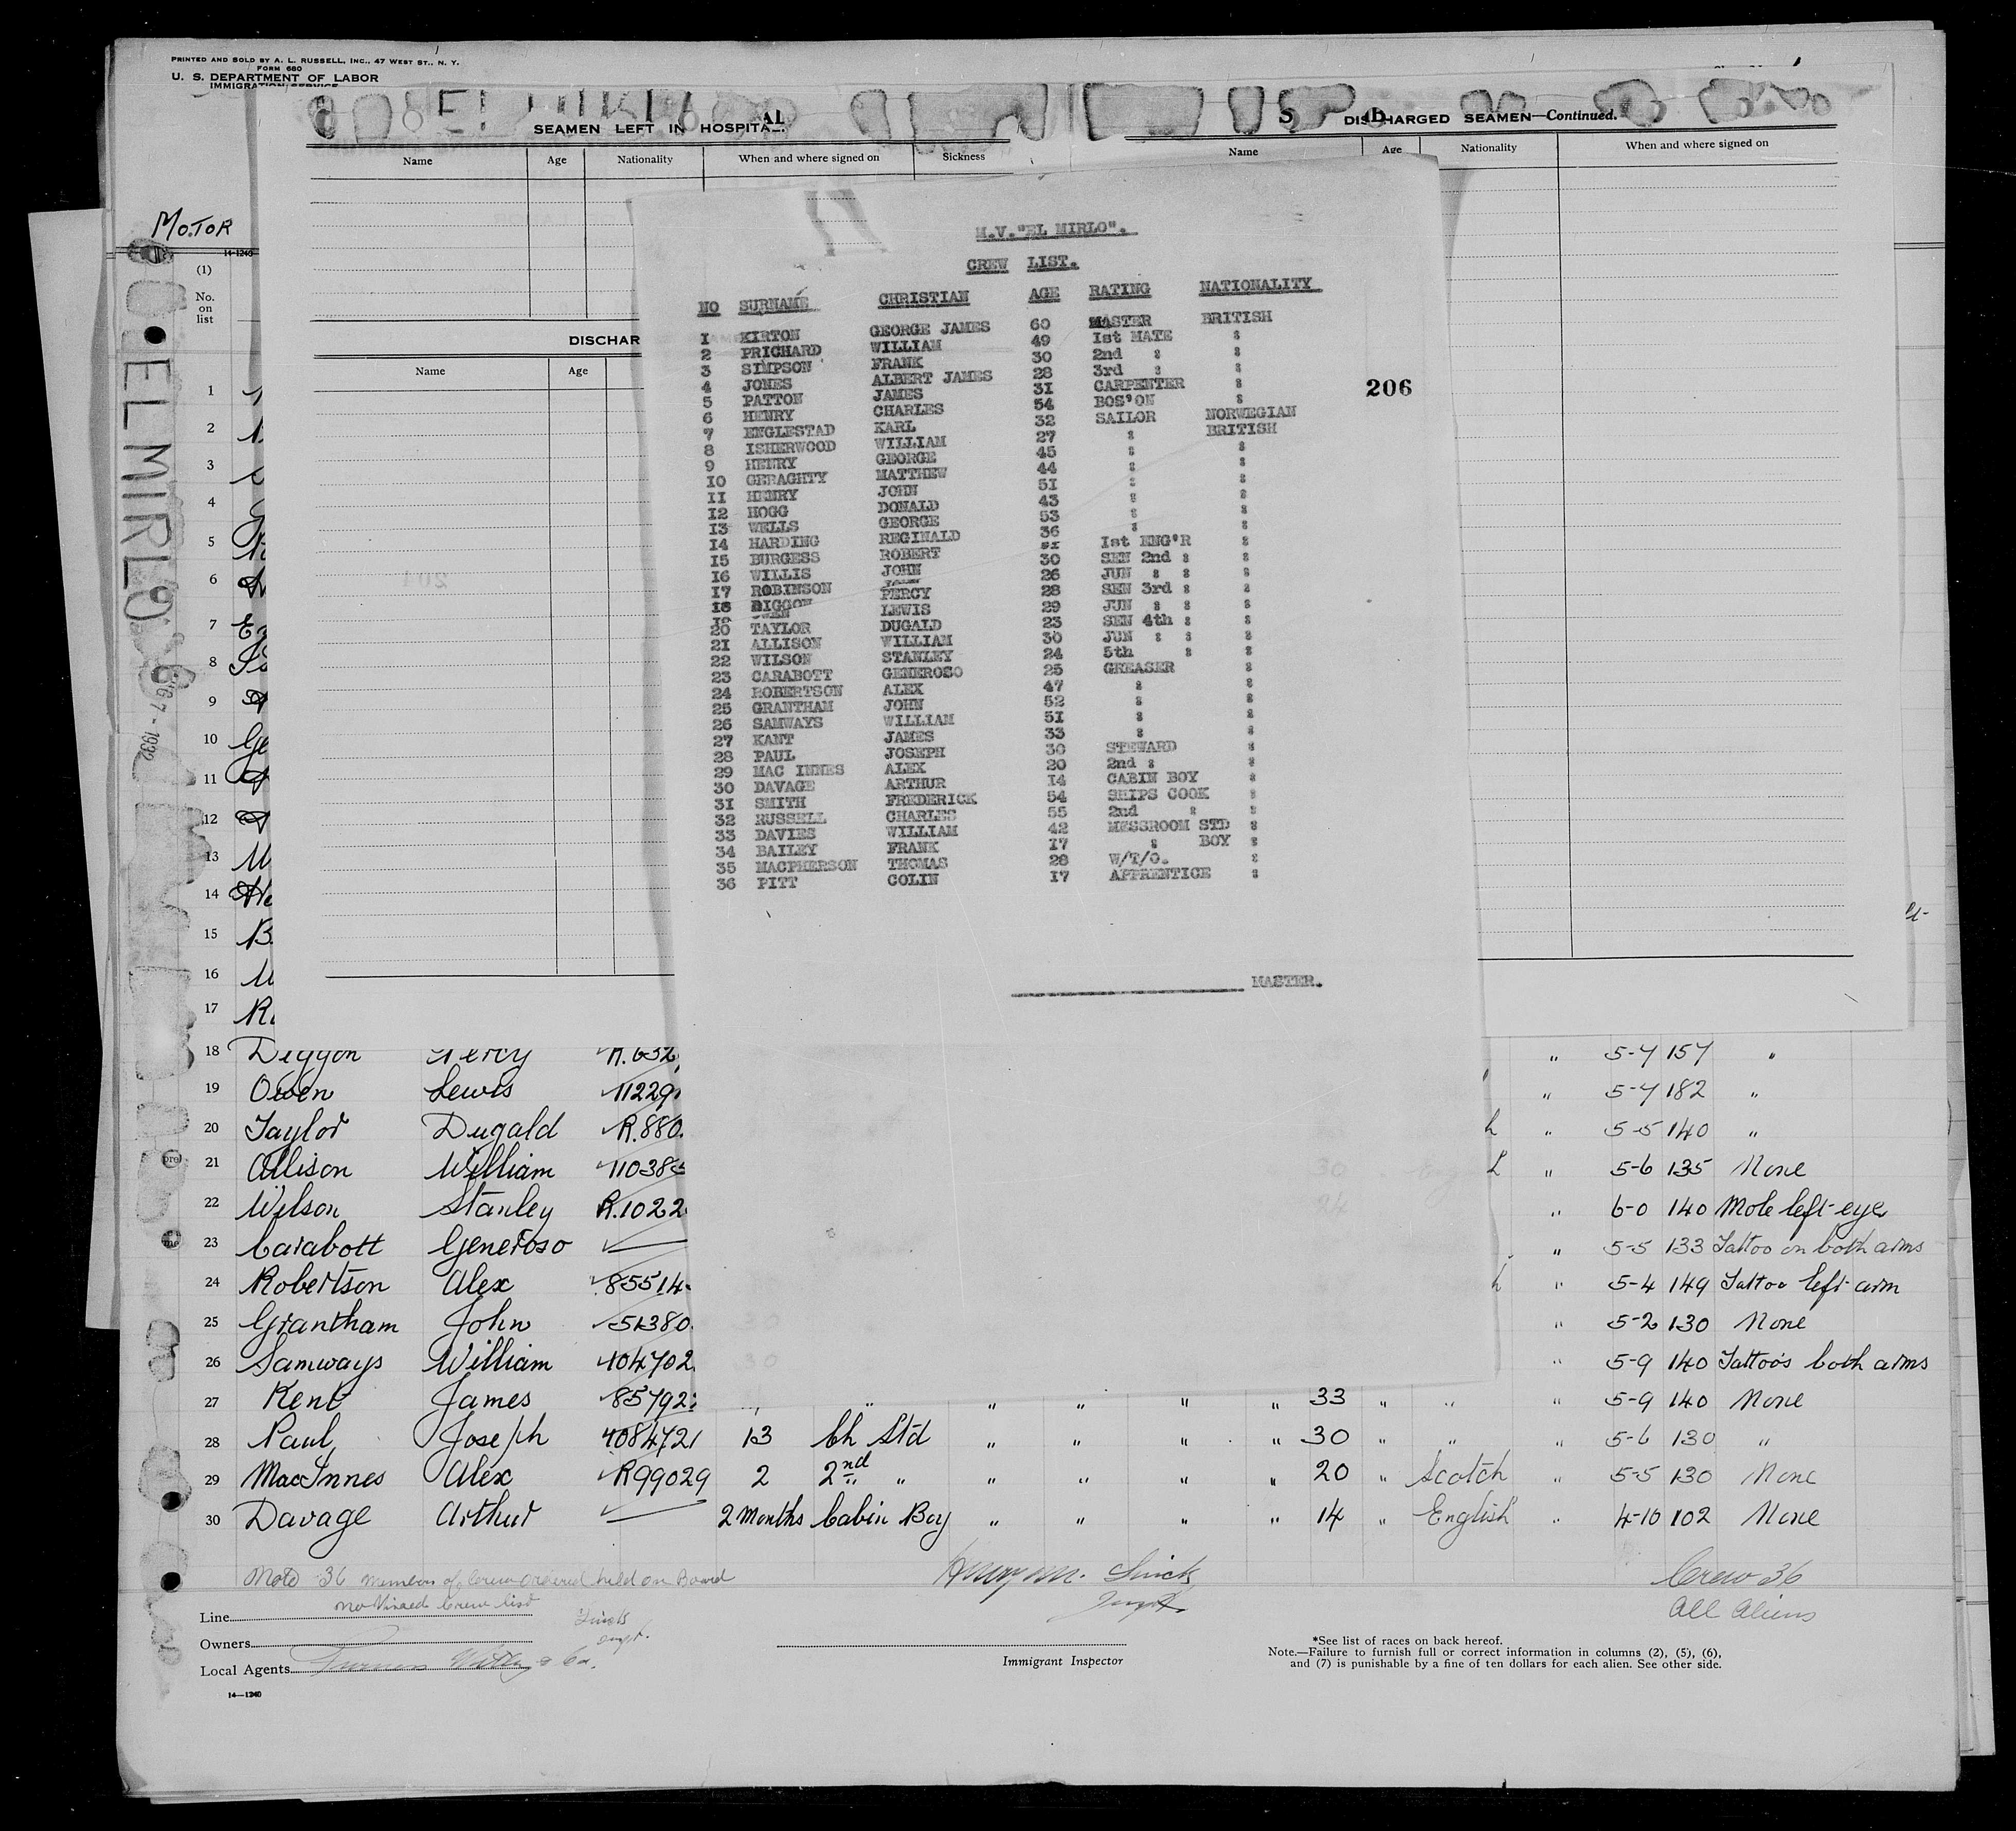 PRINTED AND SOLD BY A. L. RUSSELL, INC., 47 WEST ST., N. Y.
FORM 680
U. S. DEPARTMENT OF LABOR
IMMIGRATION SERVICE
MOTOR
14-1240
(1)
No. on list
EL MIRLO
1932
SEAMEN LEFT IN HOSPITAL
Name Age Nationality When and where signed on Sickness
DISCHARGED SEAMEN—Continued.
Name Age Nationality When and where signed on
DISCHAR
Name Age
M.V."EL MIRLO".
CREW LIST.
NO SURNAME CHRISTIAN AGE RATING NATIONALITY
I KIRTON GEORGE JAMES 60 MASTER BRITISH
2 PRICHARD WILLIAM 49 Ist MATE :
3 SIMPSON FRANK 30 2nd : :
4 JONES ALBERT JAMES 28 3rd : :
5 PATTON JAMES 3I CARPENTER :
6 HENRY CHARLES 54 BOS'ON :
7 ENGLESTAD KARL 32 SAILOR NORWEGIAN
8 ISHERWOOD WILLIAM 27 : BRITISH
9 HENRY GEORGE 45 : :
IO GERAGHTY MATTHEW 44 : :
II HENRY JOHN 5I : :
I2 HOGG DONALD 43 : :
I3 WELLS GEORGE 53 : :
I4 HARDING REGINALD 36 : :
I5 BURGESS ROBERT Ist ENG'R :
I6 WILLIS JOHN 30 SEN 2nd : :
I7 ROBINSON 26 JUN : : :
I8 DIGGON PERCY 28 SEN 3rd : :
I9 OWEN LEWIS 29 JUN : : :
20 TAYLOR DUGALD 23 SEN 4th : :
2I ALLISON WILLIAM 30 JUN : : :
22 WILSON STANLEY 24 5th : :
23 CARABOTT GENEROSO 25 GREASER :
24 ROBERTSON ALEX 47 : :
25 GRANTHAM JOHN 52 : :
26 SAMWAYS WILLIAM 5I : :
27 KANT JAMES 33 : :
28 PAUL JOSEPH 30 STEWARD :
29 MAC INNES ALEX 20 2nd : :
30 DAVAGE ARTHUR I4 CABIN BOY :
3I SMITH FREDERICK 54 SHIPS COOK :
32 RUSSELL CHARLES 55 2nd : :
33 DAVIES WILLIAM 42 MESSROOM STD :
34 BAILEY FRANK I7 : BOY :
35 MACPHERSON THOMAS 28 W/T/O. :
36 PITT COLIN I7 APPRENTICE :
MASTER.
206
1
2
3
4
5
6
7
8
9
10
11
12
13
14
15
16
17
18 Diggon Percy R.632 " 5-7 157 "
19 Owen Lewis 11229 " 5-7 182 "
20 Taylor Dugald R.880 " 5-5 140 "
21 Allison William 11038 " 5-6 135 None
22 Wilson Stanley R.1022 " 6-0 140 Mole left eye
23 Carabott Generoso " 5-5 133 Tattoo on both arms
24 Robertson Alex 85514 " 5-4 149 Tattoo left arm
25 Grantham John 51380 " 5-2 130 None
26 Samways William 104702 " 5-9 140 Tattoos both arms
27 Kent James 85792 " " " " " 33 " " " 5-9 140 None
28 Paul Joseph 1084721 13 Ch Std " " " " 30 " " " 5-6 130 "
29 MacInnes Alex R99029 2 2nd " " " " " 20 " Scotch " 5-5 130 None
30 Davage Arthur 2 Months Cabin Boy " " " " 14 " English " 4-10 102 None
Note 36 members of Crew ordered held on Board
no Visaed Crew list
Crew 36
All Aliens
Line
Owners
Local Agents Furness Withy & Co.
Immigrant Inspector
*See list of races on back hereof.
Note.—Failure to furnish full or correct information in columns (2), (5), (6),
and (7) is punishable by a fine of ten dollars for each alien. See other side.
14—1240